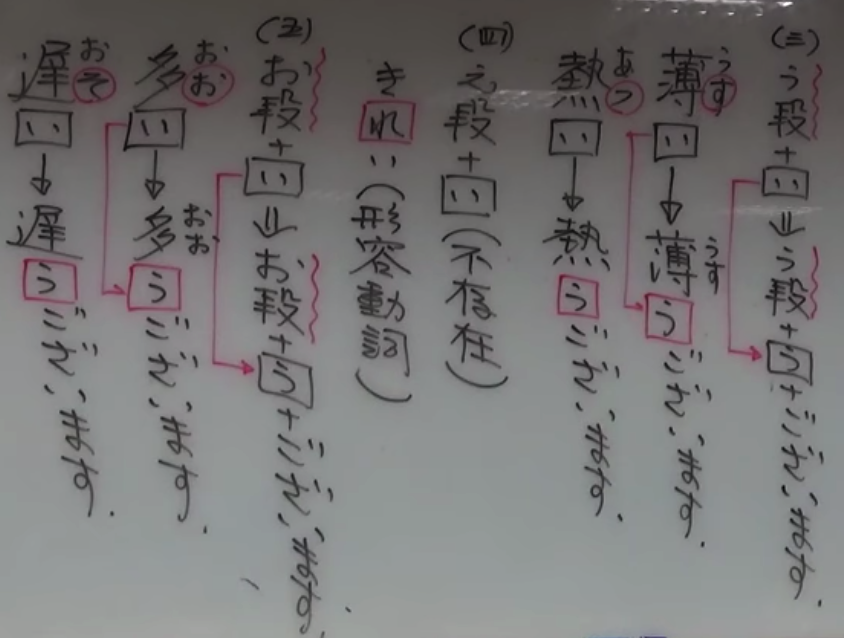 (三)う段+い⇒う段+う+ございます.
薄い→薄うございます.
うす
うす
熱い→熱うございます.
あつ
(四)え段+い(不存在)
きれい(形容動詞)
(五)お段+い⇒お段+う+ございます.
多い→多うございます.
おお
おお
遅い→遅うございます.
おそ